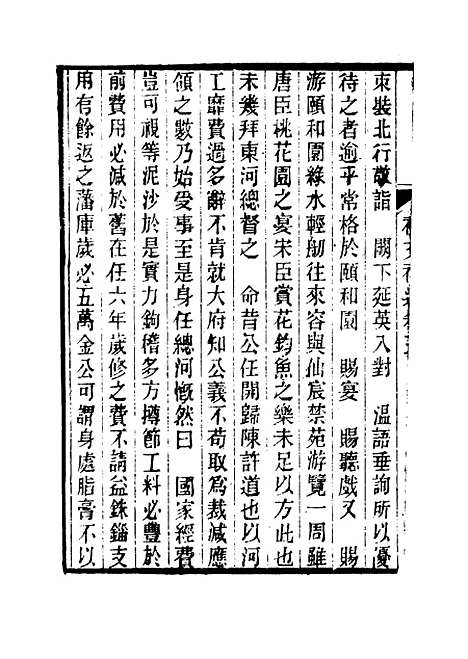 束裝北行敬詣　闕下延英入對　溫語垂詢所以優
待之者逾乎常格於頤和園　賜宴　賜聽戲又　賜
游頤和園綠水輕舠往來容與仙宸禁苑游覽一周雖
唐臣桃花園之宴宋臣賞花鈎魚之樂未足以方此也
未幾拜東河總督之　命昔公任開歸陳許道也以河
工靡費過多辭不肯就大府知公義不苟取為裁減應
領之數乃始受事至是身任總河慨然曰　國家經費
豈可視等泥沙於是實力鉤稽多方撙節工料必豐於
前費用必減於舊在任六年歲修之費不請益銖錙支
用有餘返之藩庫歲必五萬金公可謂身處脂膏不以